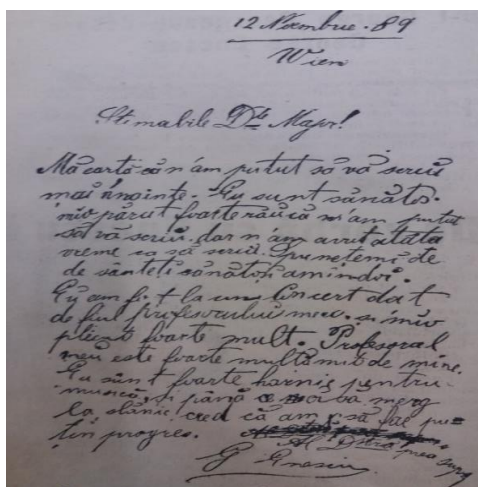 12 Noembrie. 89
Wien
Stimabile Dle Major!
Mă eartă că n'am putut să vă scriu
mai 'nnainte. Eu sunt sănătos.
părut foarte rău că n'am putut
să vă scriu. dar n'am avut atâta
vreme ca să scriu. Spunetemi de
de sănteti sănătoși amindoi.
Eu am fost la un Concert dat
de fiul profesorului meu. și
plăcut foarte mult. Profesoral
meu este foarte multămit de mine.
Eu sunt foarte harnic pentru
musică, și până voi merg
la slănic, cred că am să fac pu=
țin progres.
Al Dtră prea supus
G Enescu